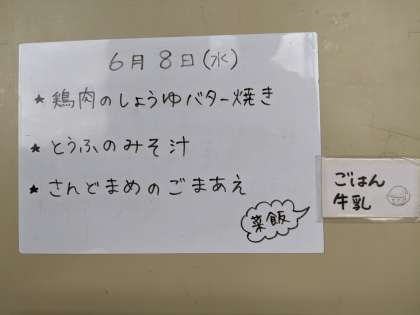 6月8日(水)
★鶏肉のしょうゆバター焼き
★とうふのみそ汁
★さんどまめのごまあえ
菜飯
ごはん
牛乳